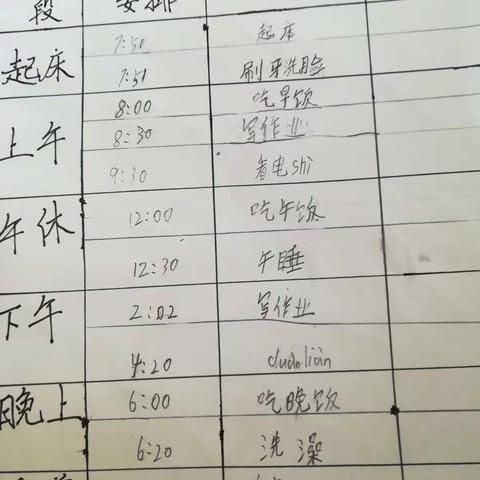 段 安排
7:50 起床
起床
7:51 刷牙洗脸
8:00 吃早饮
上午 8:30 写作业
9:30 看电shi
午休 12:00 吃午饭
12:30 午睡
下午 2:02 写作业
4:20 duànliàn
晚上 6:00 吃晚饭
6:20 洗澡